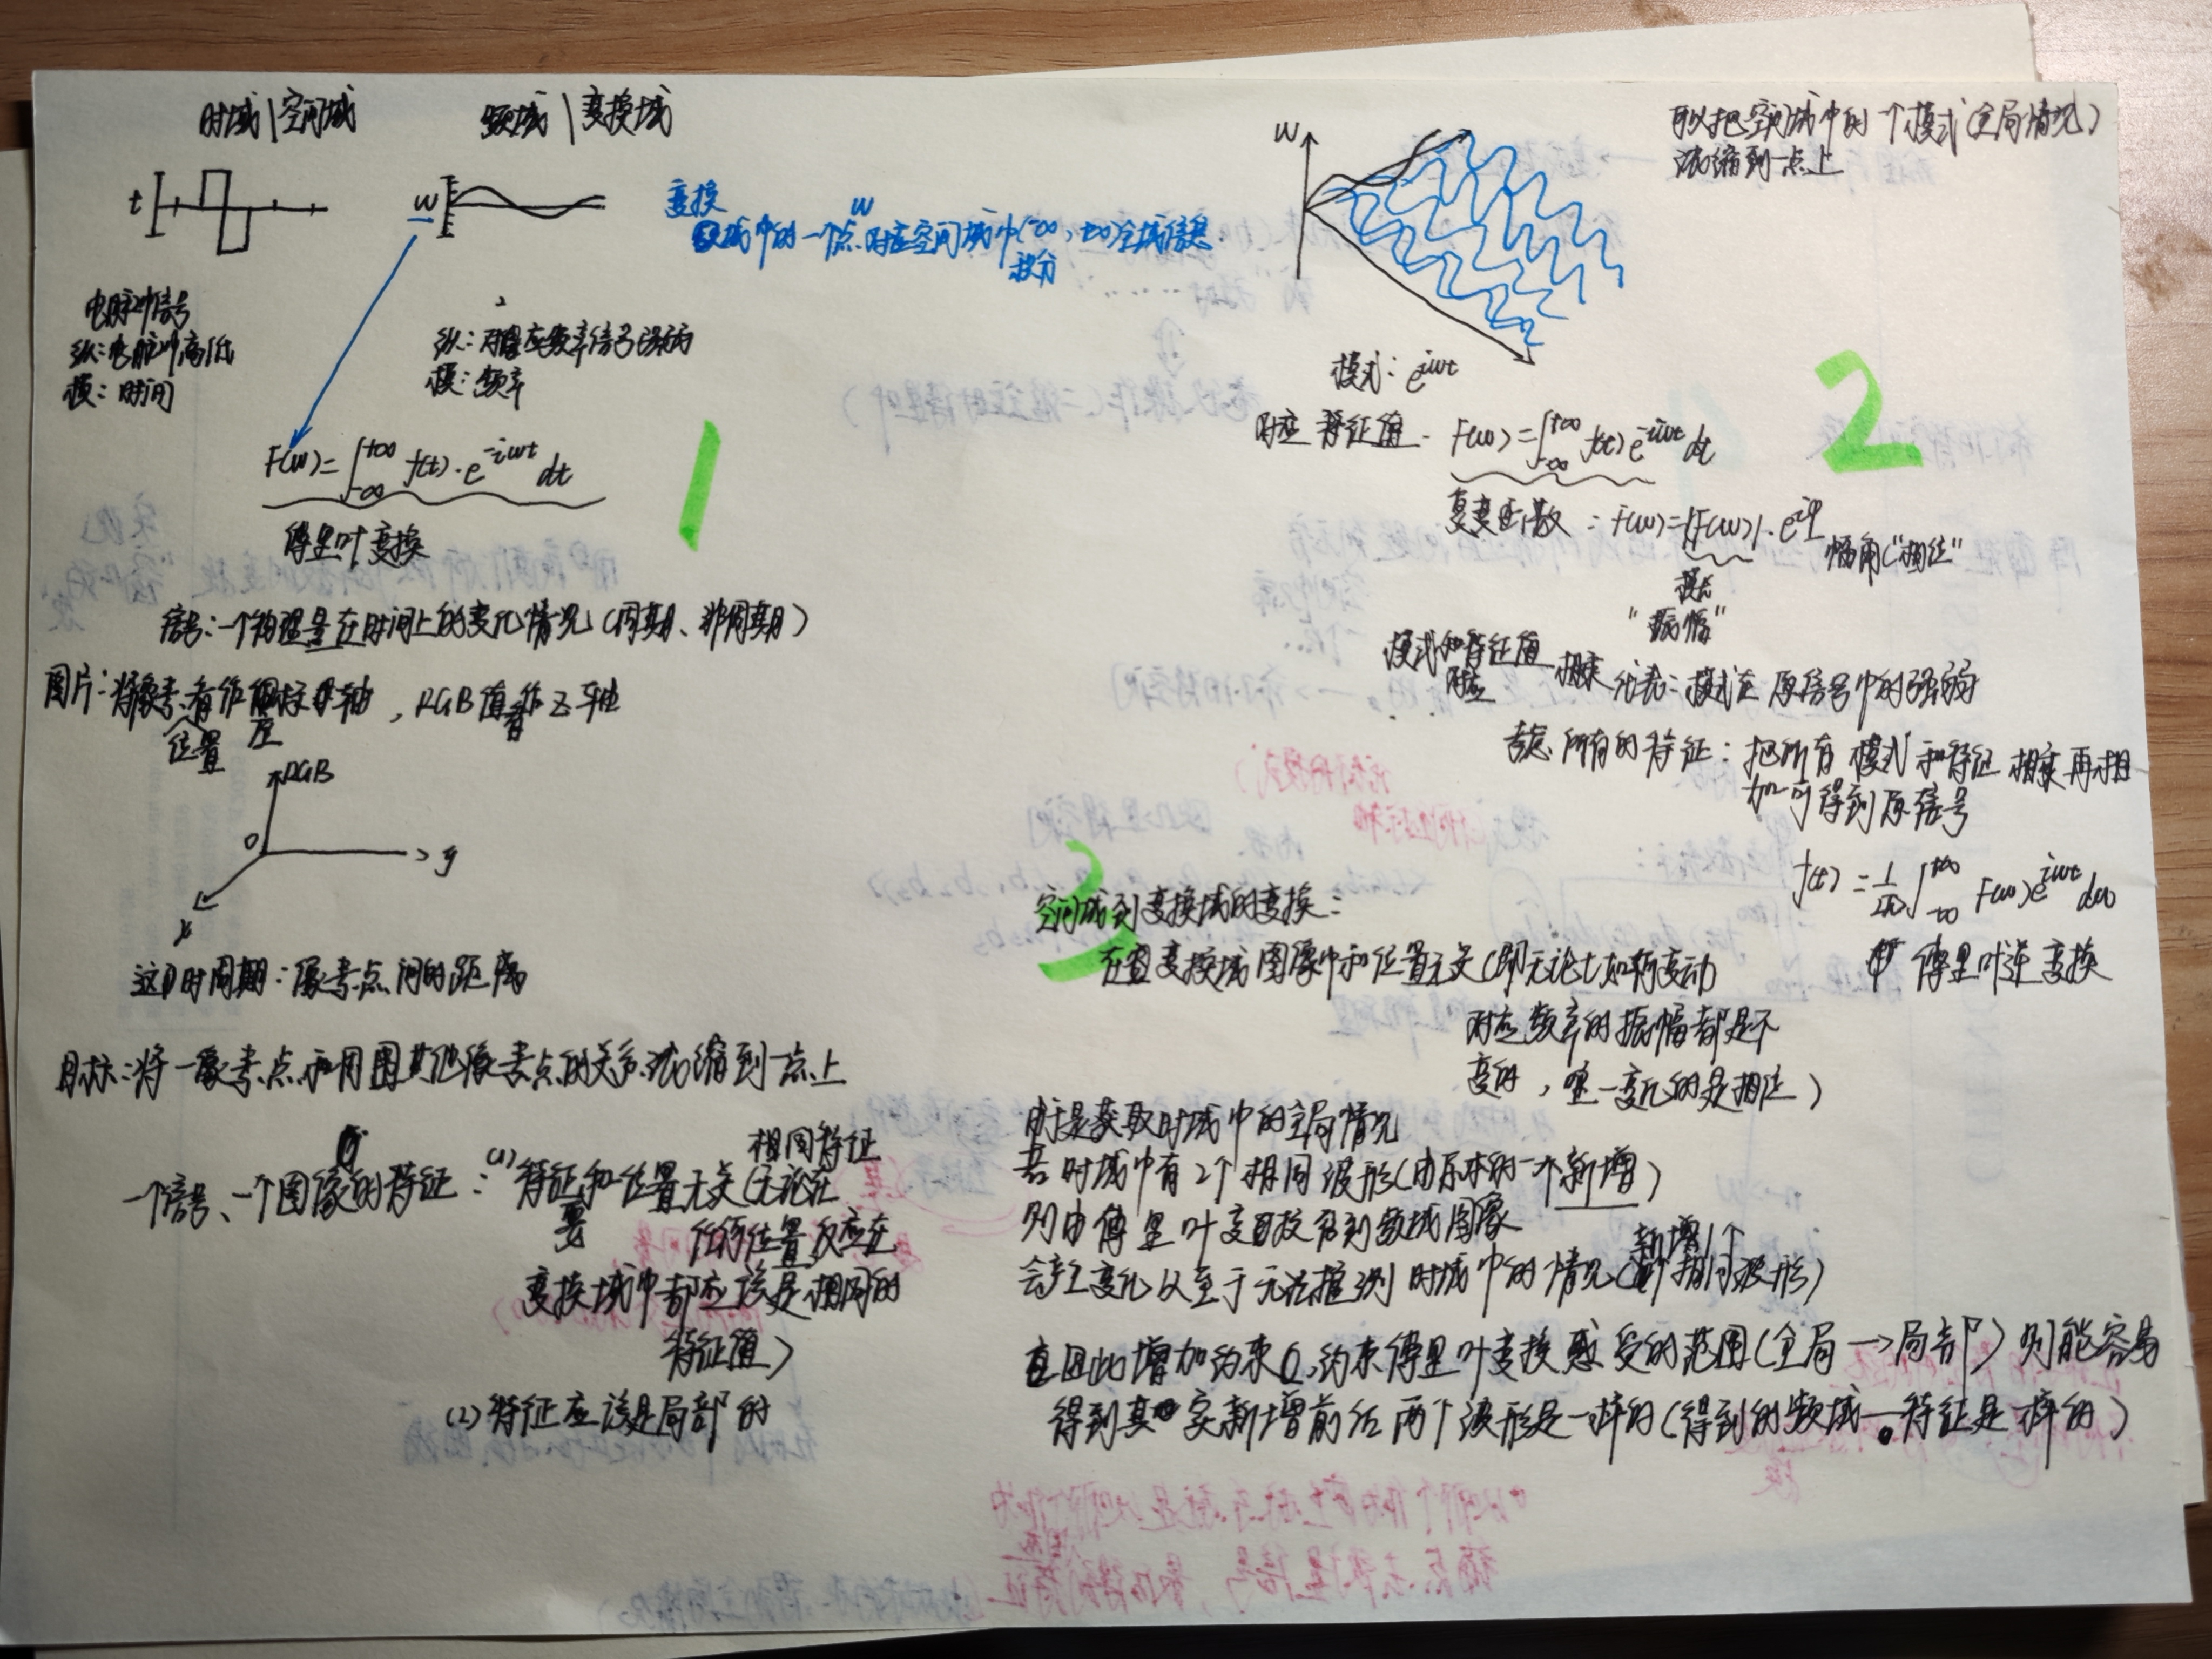 时域 | 空间域
频域 | 变换域
t
w
变换
域中的一个点w对应空间域中(-∞,+∞)全域信息
积分
电脉冲信号
纵:电脉冲高低
横:时间
纵:对应频率信号强弱
横:频率
F(w)=∫_{-∞}^{+∞} f(t)·e^{-iwt} dt
傅里叶变换
1
信号:一个物理量在时间上的变化情况(周期、非周期)
图片:将像素位置看作坐标轴,RGB值看作Z轴
RGB
O
y
x
这时周期:像素点间的距离
目标:将一像素点和周围其他像素点的关系浓缩到一点上
一个信号、一个图像的特征:(1)特征要和位置无关(无论相同特征在
任何位置反应在
变换域中都应该是相同的
特征值)
(2)特征应该是局部的
w
可以把空间域中的一个模式(全局情况)
浓缩到一点上
2
模式:e^{iwt}
对应特征值. F(w)=∫_{-∞}^{+∞} f(t)e^{-iwt} dt
复变函数:F(w)=|F(w)|·e^{iφ}
幅角("相位"
模
"振幅"
模式和对应特征值相乘 代表:模式在原信号中的强弱
考虑所有的特征:把所有模式和特征相乘再相
加可得到原信号
f(t)=1/2π∫_{-∞}^{+∞} F(w)e^{iwt} dw
傅里叶逆变换
3
空间域到变换域的变换:
在变换域图像中和位置无关(即无论t如何变动
对应频率的振幅都是不
变的,唯一变化的是相位)
时域中的全局情况
若时域中有2个相同波形(由原本的一个新增)
则由傅里叶变换得到频域图像
会产生变化以至于无法推测时域中的情况(新增1个相同波形)
因此增加约束,约束傅里叶变换感受的范围(全局→局部)则能容易
得到其实新增前后两个波形是一样的(得到的频域特征是一样的)